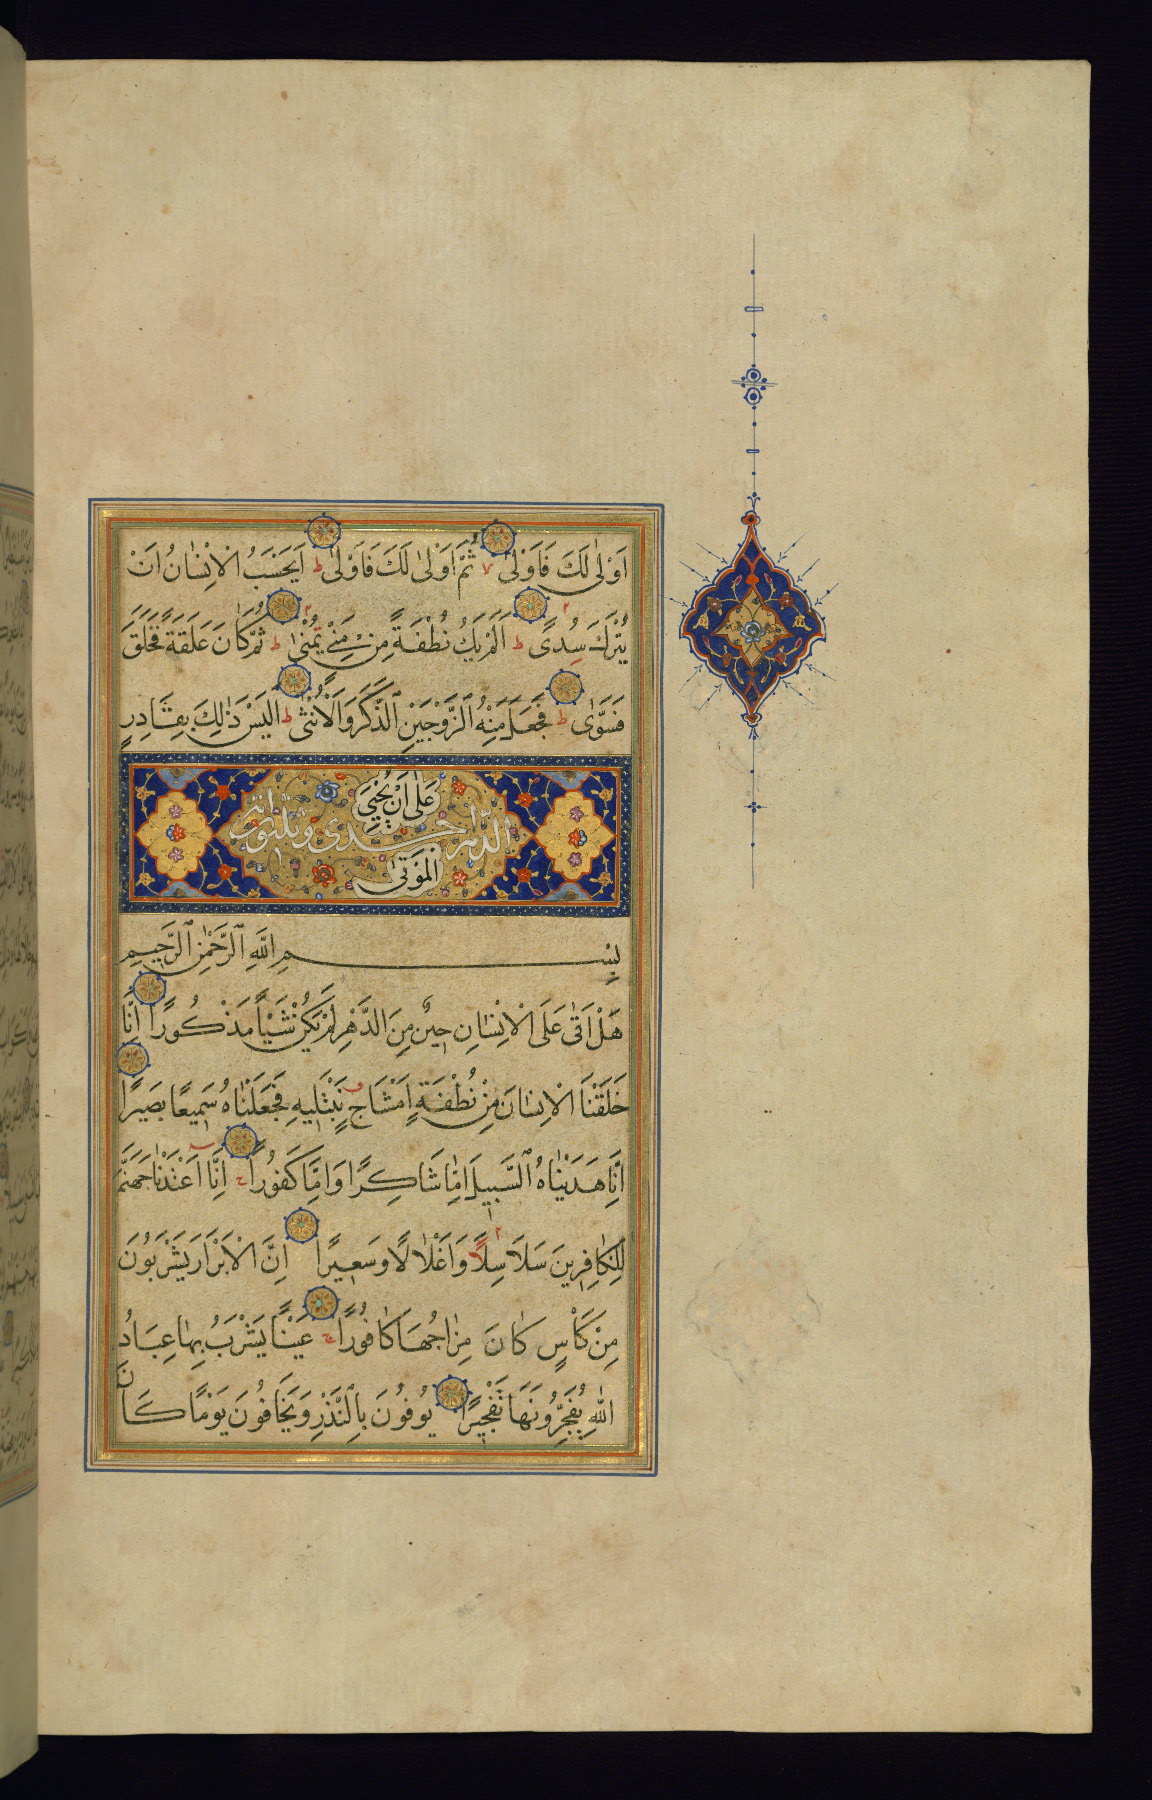 اَوْلٰى لَكَ فَاَوْلٰى ثُمَّ اَوْلٰى لَكَ فَاَوْلٰى ط اَيَحْسَبُ الْاِنْسٰانُ اَنْ
يُتْرَكَ سُدًى ط اَلَمْ يَكُ نُطْفَةً مِنْ مَنِيٍّ يُمْنٰى ط ثُمَّ كَانَ عَلَقَةً فَخَلَقَ
فَسَوّٰى ط فَجَعَلَ مِنْهُ الزَّوْجَيْنِ الذَّكَرَ وَالْاُنْثٰى ط اَلَيْسَ ذٰلِكَ بِقٰادِرٍ
عَلٰى اَنْ يُحْيِيَ
الدهر احدى وثلثون اية
الْمَوْتٰى
بِسْمِ اللّٰهِ الرَّحْمٰنِ الرَّحِيمِ
هَلْ اَتٰى عَلَى الْاِنْسٰانِ حِينٌ مِنَ الدَّهْرِ لَمْ يَكُنْ شَيْئًا مَذْكُورًا اِنَّا
خَلَقْنَا الْاِنْسٰانَ مِنْ نُطْفَةٍ اَمْشَاجٍ نَبْتَلِيهِ فَجَعَلْنٰاهُ سَمِيعًا بَصِيرًا
اِنَّا هَدَيْنٰاهُ السَّبِيلَ اِمّٰا شَاكِرًا وَاِمَّا كَفُورًا اِنَّا اَعْتَدْنٰا جَهَنَّمَ
لِلْكٰافِرِينَ سَلَاسِلًا وَاَغْلٰالًا وَسَعِيرًا اِنَّ الْاَبْرَارَ يَشْرَبُونَ
مِنْ كَاْسٍ كٰانَ مِزٰاجُهَا كٰافُورًا عَيْنًا يَشْرَبُ بِهٰا عِبَادُ
اللّٰهِ يُفَجِّرُونَهَا تَفْجِيرًا يُوفُونَ بِالنَّذْرِ وَيَخَافُونَ يَوْمًا كَانَ